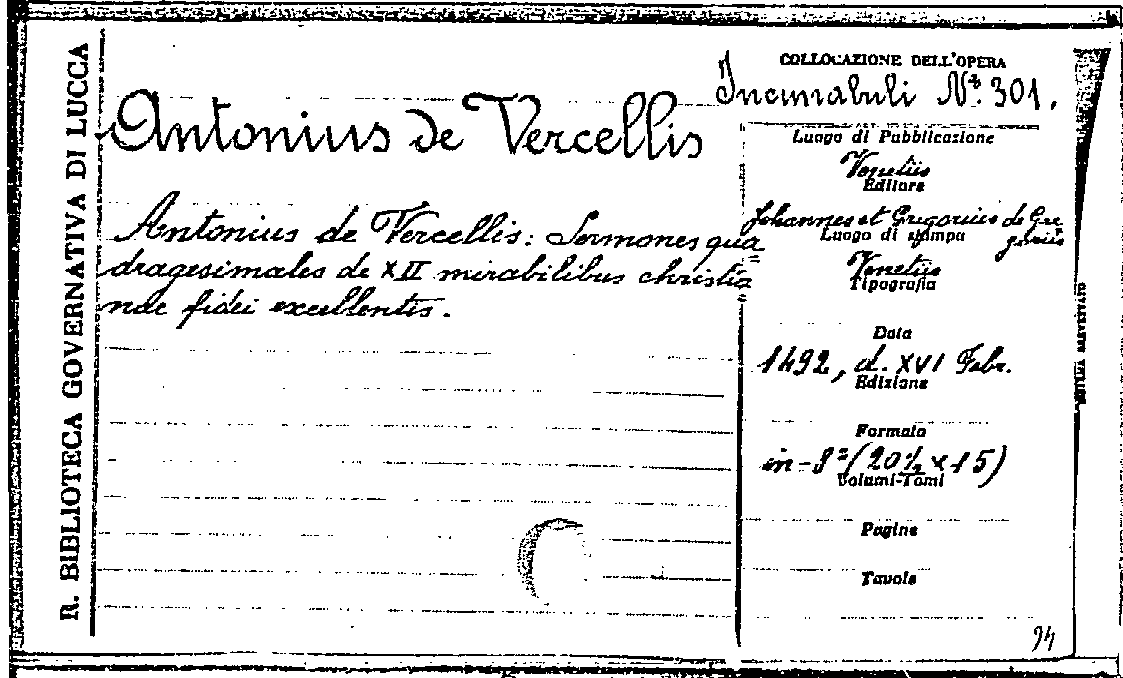 R. BIBLIOTECA GOVERNATIVA DI LUCCA
Antonius de Vercellis
Antonius de Vercellis: Sermones qua
dragesimales de XII mirabilibus christia
nae fidei excellentis.
COLLOCAZIONE DELL'OPERA
Incunabuli N.º 301.
Luogo di Pubblicazione
Venetiis
Editore
Johannes et Gregorius de Gre
goriis
Luogo di stampa
Venetiis
Tipografia
Data
1492, d. XVI Febr.
Edizione
Formato
in-8º (20½ x 15)
Volumi-Tomi
Pagine
Tavole
94